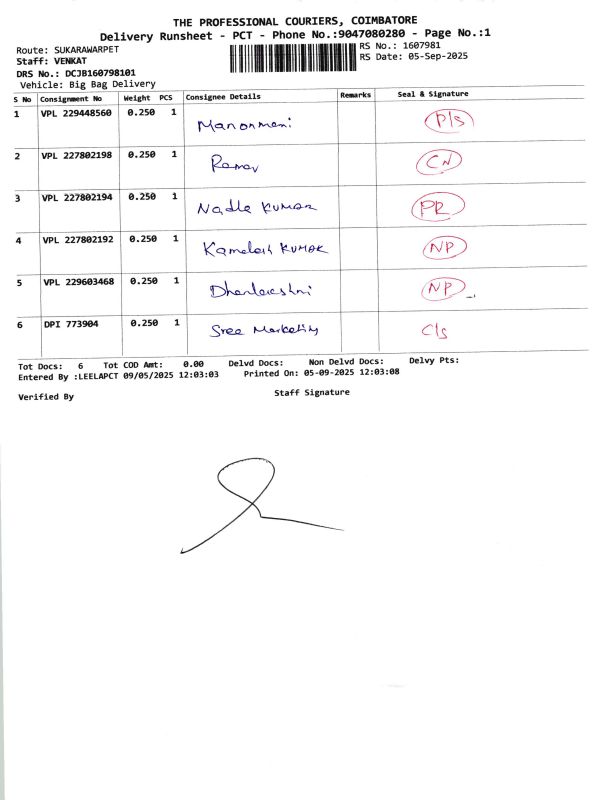 THE PROFESSIONAL COURIERS, COIMBATORE
Delivery Runsheet - PCT - Phone No.:9047080280 - Page No.:1
Route: SUKARAWARPET
RS No.: 1607981
Staff: VENKAT
RS Date: 05-Sep-2025
DRS No.: DCJB160798101
Vehicle: Big Bag Delivery
S No Consignment No Weight PCS Consignee Details Remarks Seal & Signature
1 VPL 229448560 0.250 1 Manonmani P/S
2 VPL 227802198 0.250 1 Raman CN
3 VPL 227802194 0.250 1 KUMAR PR
4 VPL 227802192 0.250 1 Kamalesh KUMAR NP
5 VPL 229603468 0.250 1 Dhanlakshmi NP
6 DPI 773904 0.250 1 Sree Marketing C/s
Tot Docs: 6 Tot COD Amt: 0.00 Delvd Docs: Non Delvd Docs: Delvy Pts:
Entered By :LEELAPCT 09/05/2025 12:03:03 Printed On: 05-09-2025 12:03:08
Verified By Staff Signature